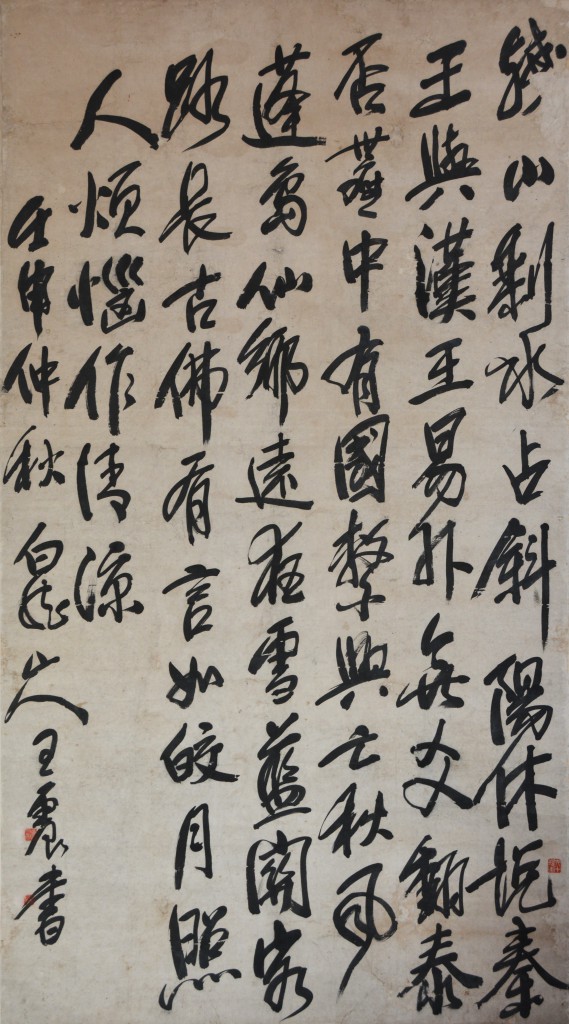 殘山剩水占斜陽休把秦
王與漢王易卦無爻翻泰
否中有國繫興亡秋風
蓬島仙鄉遠狂雪藍關客
路長古佛有言如皎月照
人煩惱作清涼
壬申仲秋白龍山人王震書